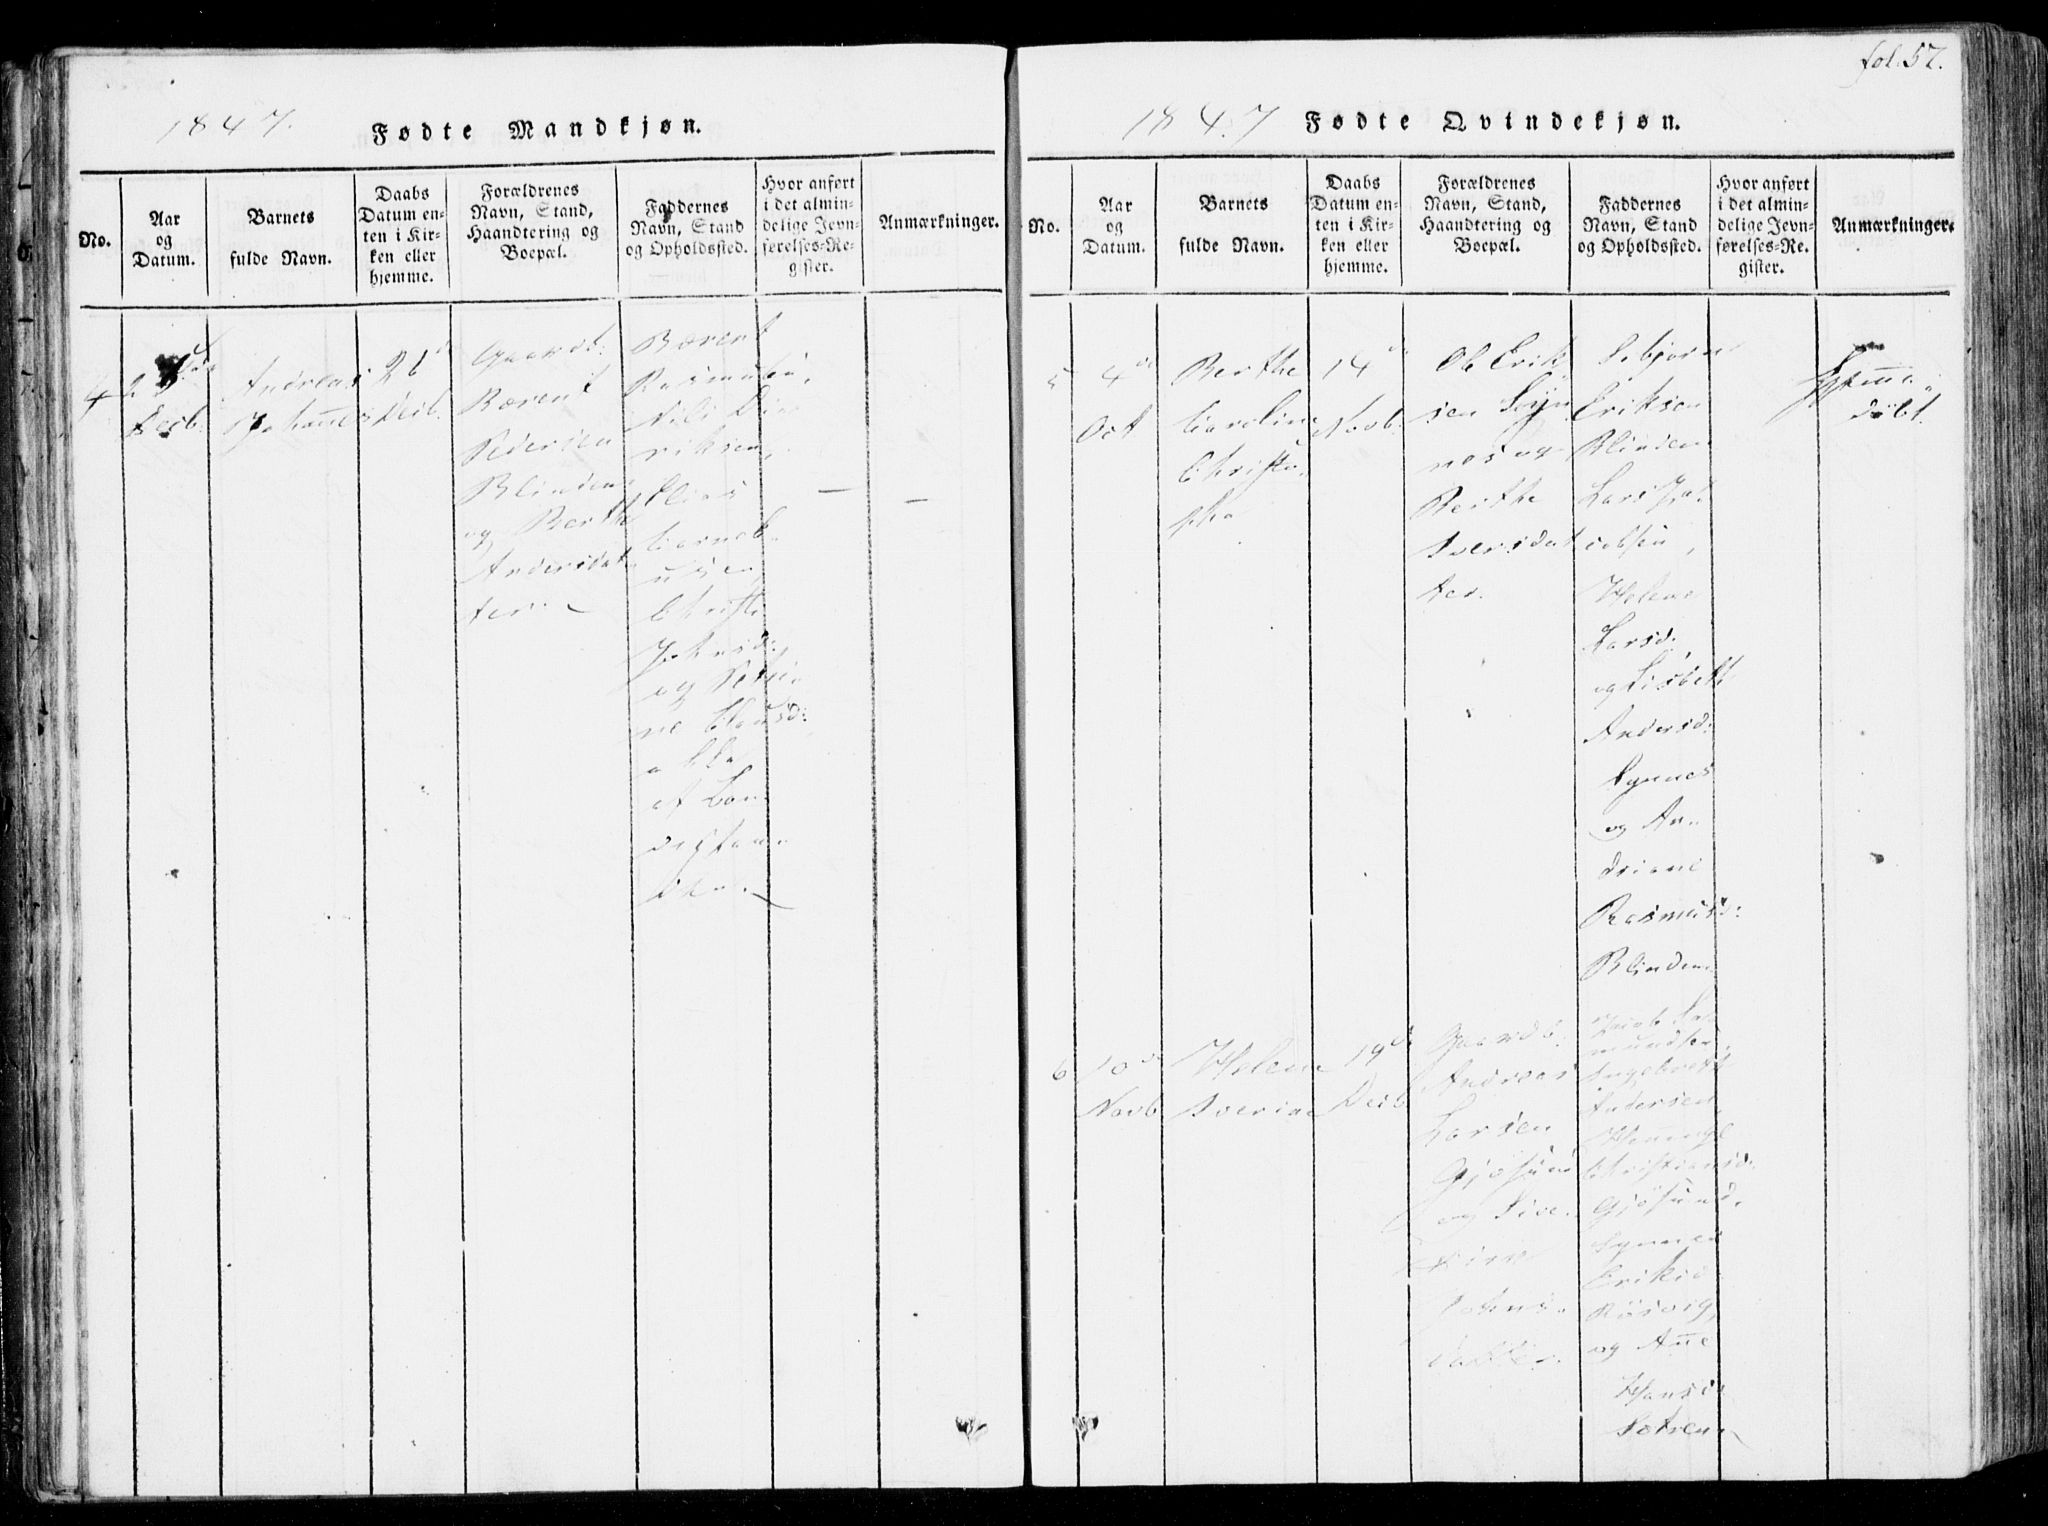 fol. 57.
1847. Fødte Mandkjøn.
No.
Aar
og
Datum.
Barnets
fulde Navn.
Daabs
Datum en-
ten i Kir-
ken eller
hjemme.
Forældrenes
Navn, Stand,
Haandtering og
Boepæl.
Faddernes
Navn, Stand
og Opholdssted.
Hvor anført
i det almin-
delige Jevn-
førelses-Re-
gister.
Anmærkninger.
4
Decb.
Andreas
Johañes
26
Decb.
Gaardb.
Bærent
Pedersen
Blinden
og Berthe
Andersdat
ter.
Bærent
Rasmusen,
Nils Di
riksen,
Elias
Christi
Johnsd:
og Petri
ne Clausd:
alle
af
1847 Fødte Qvindekjøn.
No.
Aar
og
Datum.
Barnets
fulde Navn.
Daabs
Datum en-
ten i Kir-
ken eller
hjemme.
Forældrenes
Navn, Stand,
Haandtering og
Boepæl.
Faddernes
Navn, Stand
og Opholdssted.
Hvor anført
i det almin-
delige Jevn-
førelses-Re-
gister.
Anmærkninger.
5
4de
Oct
Berthe
Caroline
Christo
pha
14de
Novb.
Ole Erik
sen Syn
nes og
Berthe
Iversdat
ter.
Sebjørn
Eriksen
Blinden
Lars Ja
cobsen,
Helene
Larsd:
og Lisbeth
Andersd:
Synnes
og An
driane
Rasmusd:
Blinden
Hjemme
døbt.
6
10de
Novb
Helene
Iverine
19de
Decb
Gaardb.
Andreas
Larsen
Gjøsund
og
Johns
datter.
Jacob
mundsen,
Ingebregt
Andersen,
Christiansd:
Gjøsund,
Synnes
Eriksd
Røsvig,
og Añe
Hansd